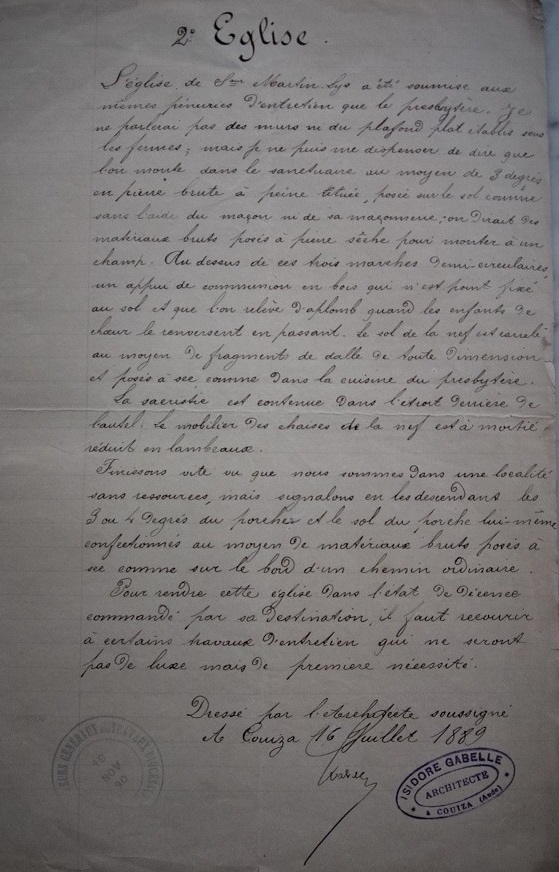 2° Eglise.
L'église de St Martin-Lys a été soumise aux
mêmes pénuries d'entretien que le presbytère. Je
ne parlerai pas des murs ni du plafond plat établis sous
les fermes; mais je ne puis me dispenser de dire que
l'on monte dans le sanctuaire au moyen de 3 degrés
en pierre brute à peine posée sur le sol comme
sans l'aide du maçon ni de sa maçonnerie; on dirait des
matériaux bruts posés à pierre sêche pour monter à un
champ. Au dessus de ces trois marches demi-circulaires,
un appui de communion en bois qui n'est point fixé
au sol et que l'on relève d'aplomb quand les enfants de
chœur le renversent en passant. Le sol de la nef est carrelé
au moyen de fragments de dalle de toute dimension
et posés à sec comme dans la cuisine du presbytère.
La sacristie est contenue dans l'étroit derrière de
l'autel. Le mobilier des chaises de la nef est à moitié
réduit en lambeaux.
Finissons vite vu que nous sommes dans une localité
sans ressources, mais signalons en les descendant les
3 ou 4 degrés du porche et le sol du porche lui-même
confectionnés au moyen de matériaux bruts posés à
sec comme sur le bord d'un chemin ordinaire.
Pour rendre cette église dans l'état de décence
commandé par sa destination, il faut recourir
à certains travaux d'entretien qui ne seront
pas de luxe mais de première nécessité.
Dressé par l'Architecte soussigné
A Couiza 16 Juillet 1889
ISIDORE GABELLE
ARCHITECTE
A COUIZA (Aude)
NOV
90